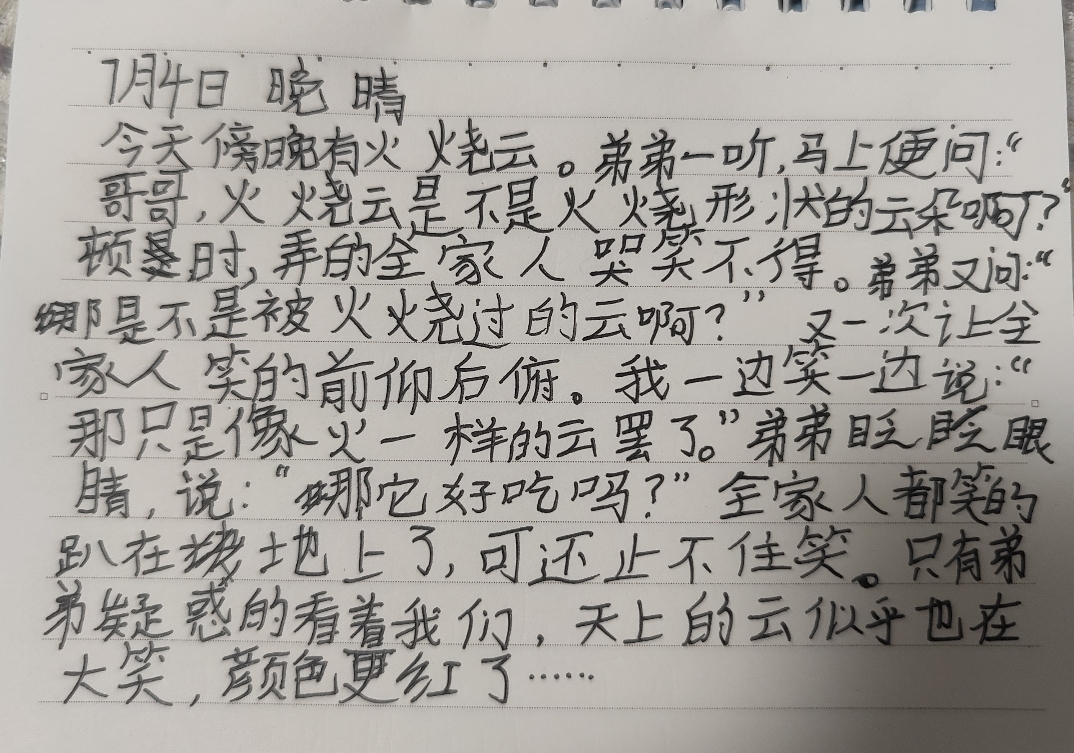 7月4日 晚 晴
今天傍晚有火烧云。弟弟一听,马上便问:“
哥哥,火烧云是不是火烧形状的云朵啊?”
顿时,弄的全家人哭笑不得。弟弟又问:“
那是不是被火烧过的云啊?”又一次让全
家人笑的前仰后俯。我一边笑一边说:“
那只是像火一样的云罢了。”弟弟眨眨眼
睛,说:“那它好吃吗?”全家人都笑的
趴在地上了,可还止不住笑。只有弟
弟疑惑的看着我们,天上的云似乎也在
大笑,颜色更红了……